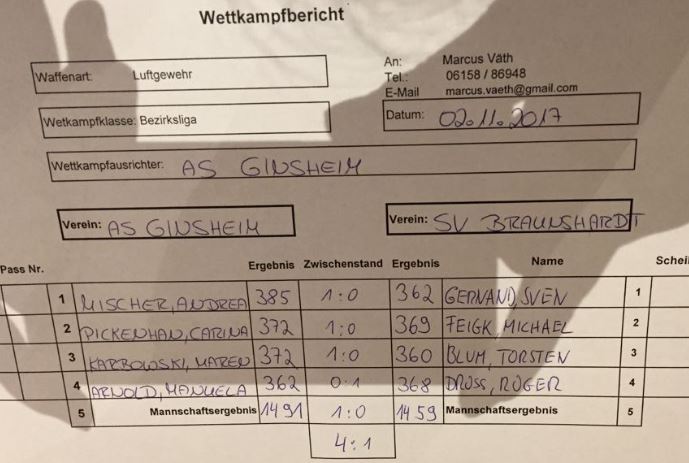 Wettkampfbericht
Waffenart: Luftgewehr
An: Marcus Väth
Tel.: 06158 / 86948
E-Mail marcus.vaeth@gmail.com
Wetkampfklasse: Bezirksliga
Datum: 02.11.2017
Wettkampfausrichter: AS GINSHEIM
Verein: AS GINSHEIM
Verein: SV BRAUNSHARDT
Pass Nr. Ergebnis Zwischenstand Ergebnis Name Schei
1 MISCHER, ANDREA 385 1:0 362 GERNAND, SVEN 1
2 PICKENHAN, CARINA 372 1:0 369 FEIGK, MICHAEL 2
3 KARBOWSKI, MAREN 372 1:0 360 BLUM, TORSTEN 3
4 ARNOLD, MANUELA 362 0:1 368 DROSS, RÜGER 4
5 Mannschaftsergebnis 1491 1:0 1459 Mannschaftsergebnis 5
4:1